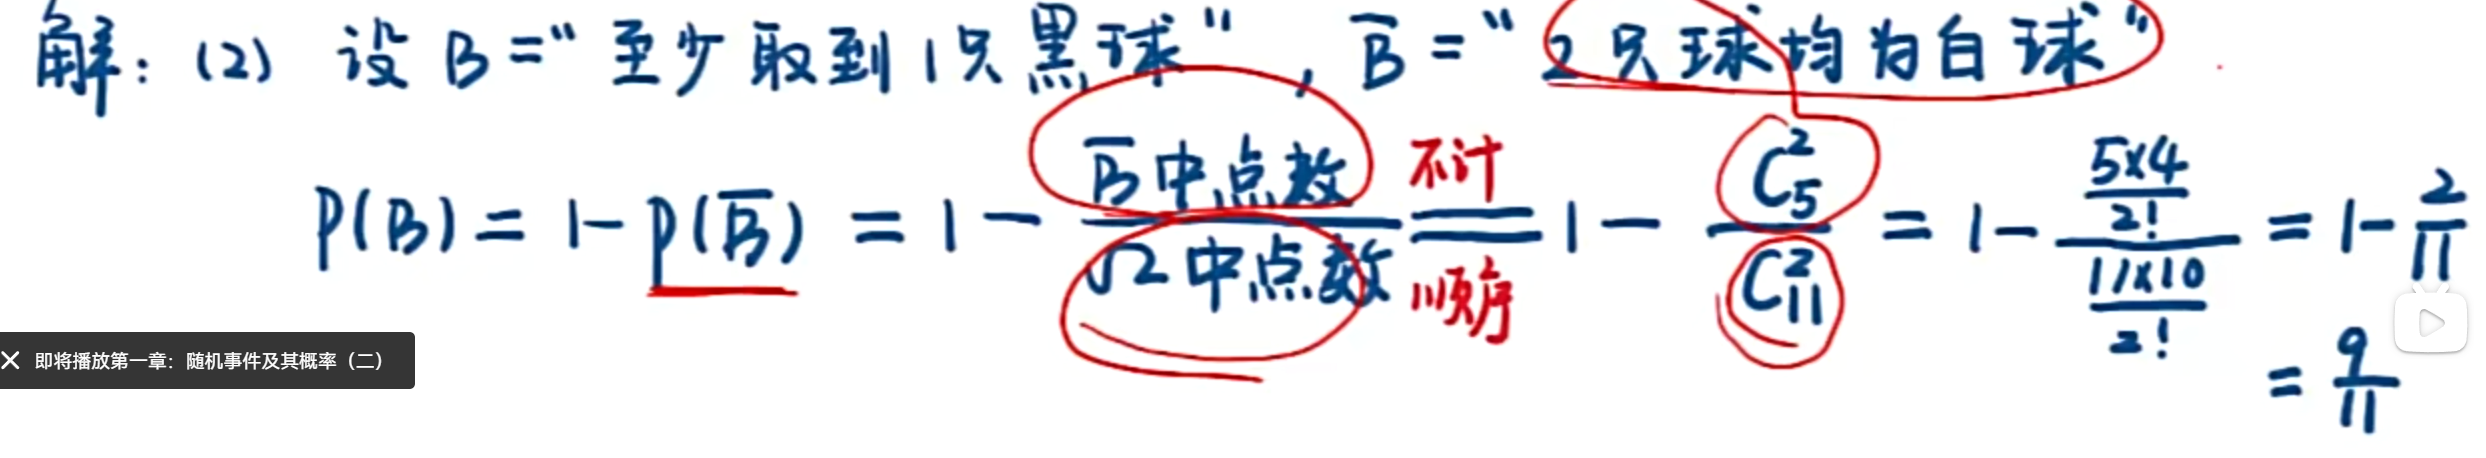 解：(2) 设 B="至少取到1只黑球", B̅="2只球均为白球"
P(B) = 1-P(B̅) = 1 - B̅中点数/Ω中点数 = 1 - C₅²/C₁₁² = 1 - (5×4/2!)/(11×10/2!) = 1 - 2/11
不计
顺序
即将播放第一章：随机事件及其概率（二）
= 9/11